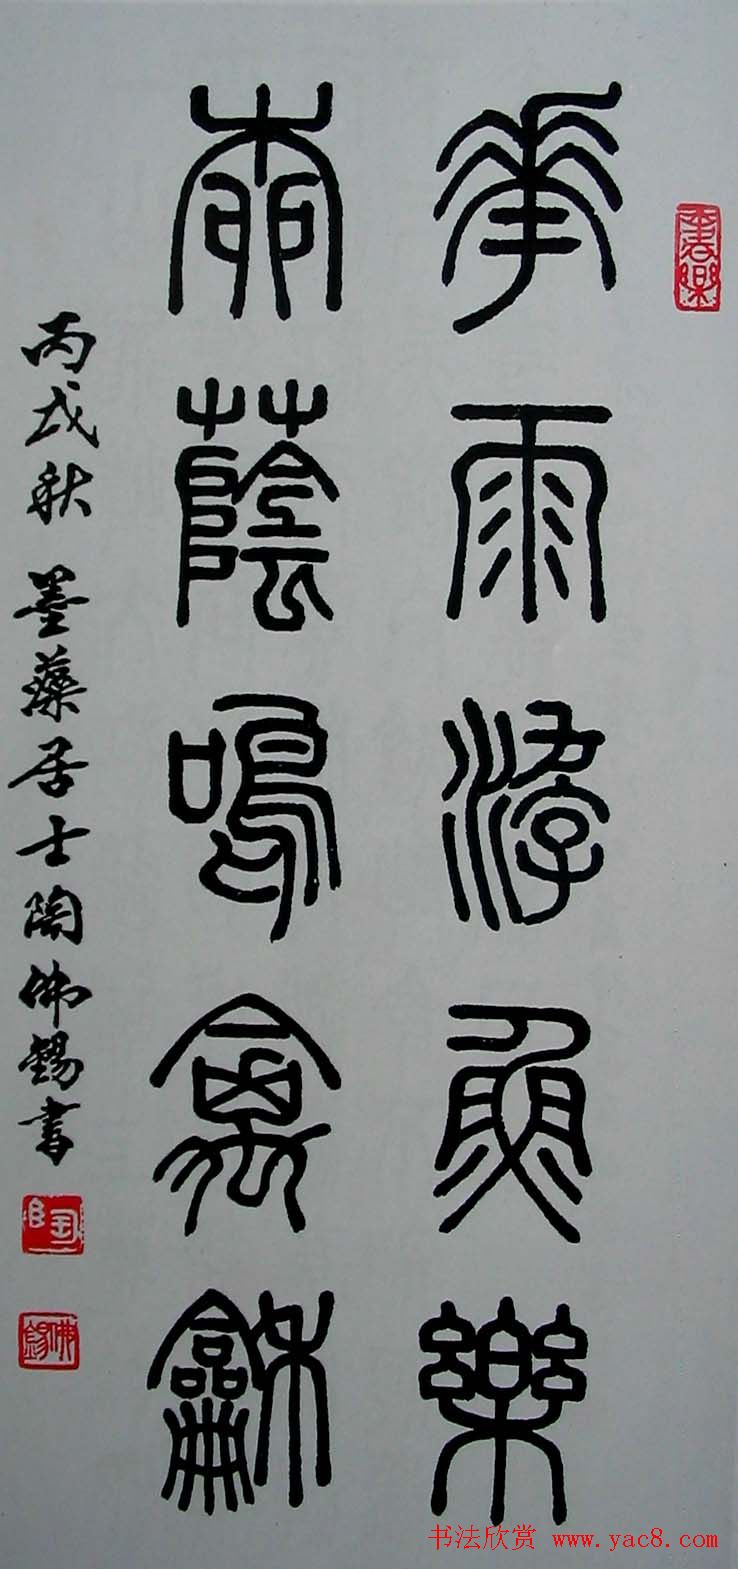 華雨浮魚樂
柳蔭鳴禽龢
丙戌秋 墨藥居士陶佛錫書
陶
佛錫
书法欣赏 www.yac8.com